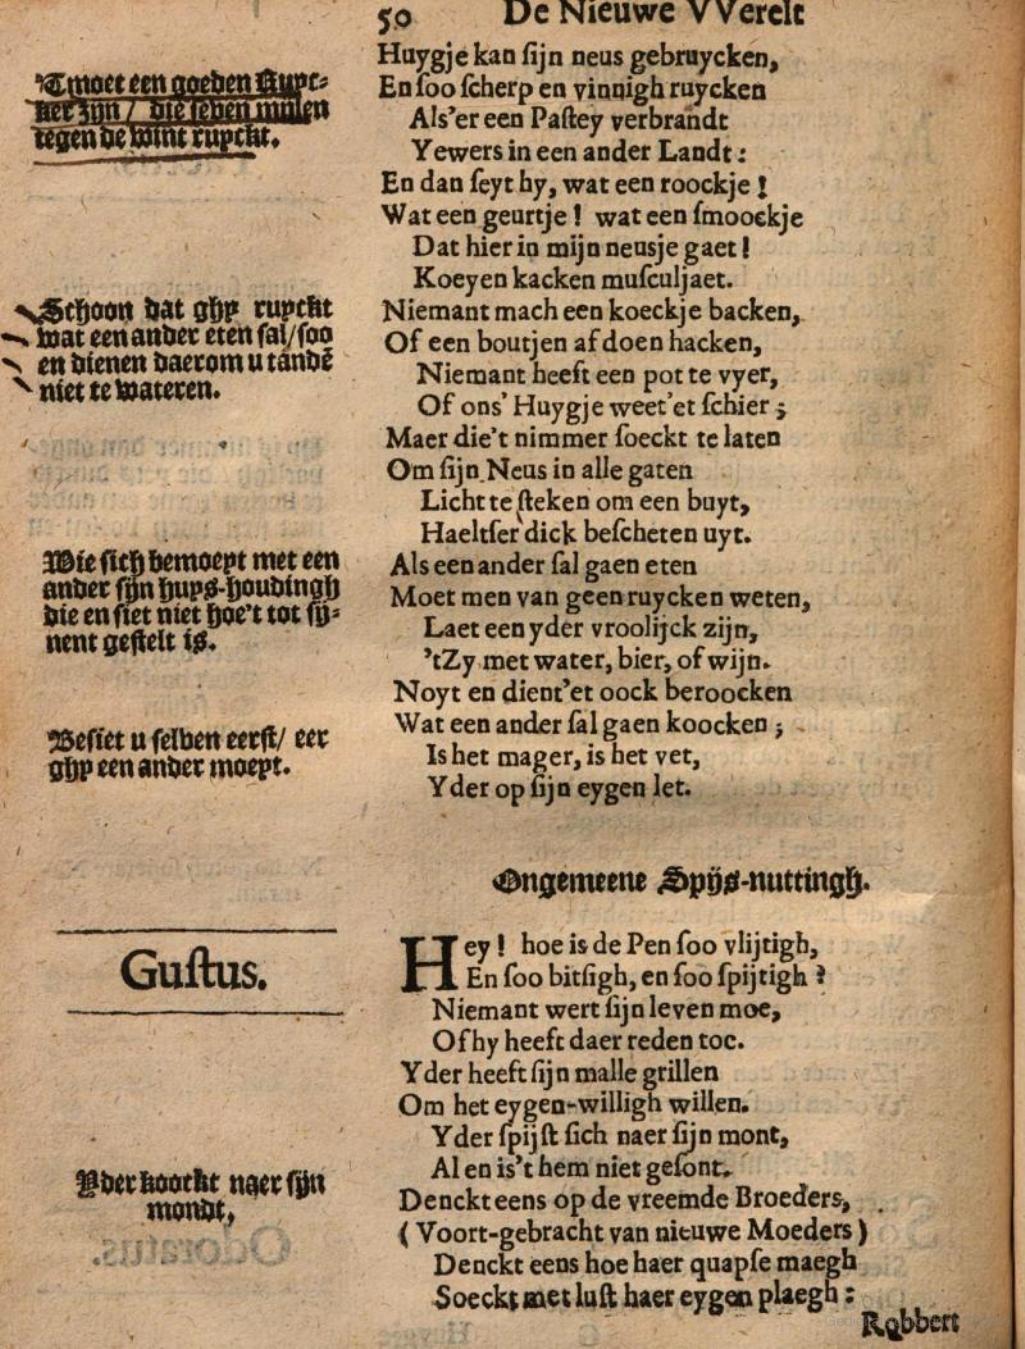 50 De Nieuwe VVerelt
'Tmoet een goeden Ruyc-
ker zijn / die seben mijlen
tegen de wint ruyckt.
Huygje kan ſijn neus gebruycken,
En ſoo ſcherp en vinnigh ruycken
Als'er een Paſtey verbrandt
Yewers in een ander Landt:
En dan ſeyt hy, wat een roockje!
Wat een geurtje! wat een ſmoockje
Dat hier in mijn neusje gaet!
Koeyen kacken muſculjaet.
Schoon dat ghy ruyckt
wat een ander eten sal/soo
en dienen daerom u tandē
niet te wateren.
Niemant mach een koeckje backen,
Of een boutjen af doen hacken,
Niemant heeft een pot te vyer,
Of ons' Huygje weet'et ſchier;
Maer die't nimmer ſoeckt te laten
Om ſijn Neus in alle gaten
Licht te ſteken om een buyt,
Haeltſer dick beſcheten uyt.
Wie sich bemoeyt met een
ander sijn huys-houdingh
die en siet niet hoe't tot sij-
nent gestelt is.
Als een ander ſal gaen eten
Moet men van geen ruycken weten,
Laet een yder vroolijck zijn,
'tZy met water, bier, of wijn.
Noyt en dient'et oock beroocken
Wat een ander ſal gaen koocken;
Is het mager, is het vet,
Yder op ſijn eygen let.
Besiet u selven eerst/ eer
ghy een ander moeyt.
Ongemeene Spijs-nuttingh.
Guſtus.
Hey! hoe is de Pen ſoo vlijtigh,
En ſoo bitſigh, en ſoo ſpijtigh?
Niemant wert ſijn leven moe,
Of hy heeft daer reden toe.
Yder heeft ſijn malle grillen
Om het eygen-willigh willen.
Yder ſpijſt ſich naer ſijn mont,
Al en is't hem niet geſont.
Yder koockt naer sijn
mondt,
Denckt eens op de vreemde Broeders,
(Voort-gebracht van nieuwe Moeders)
Denckt eens hoe haer quapſe maegh
Soeckt met luſt haer eygen plaegh:
Robbert